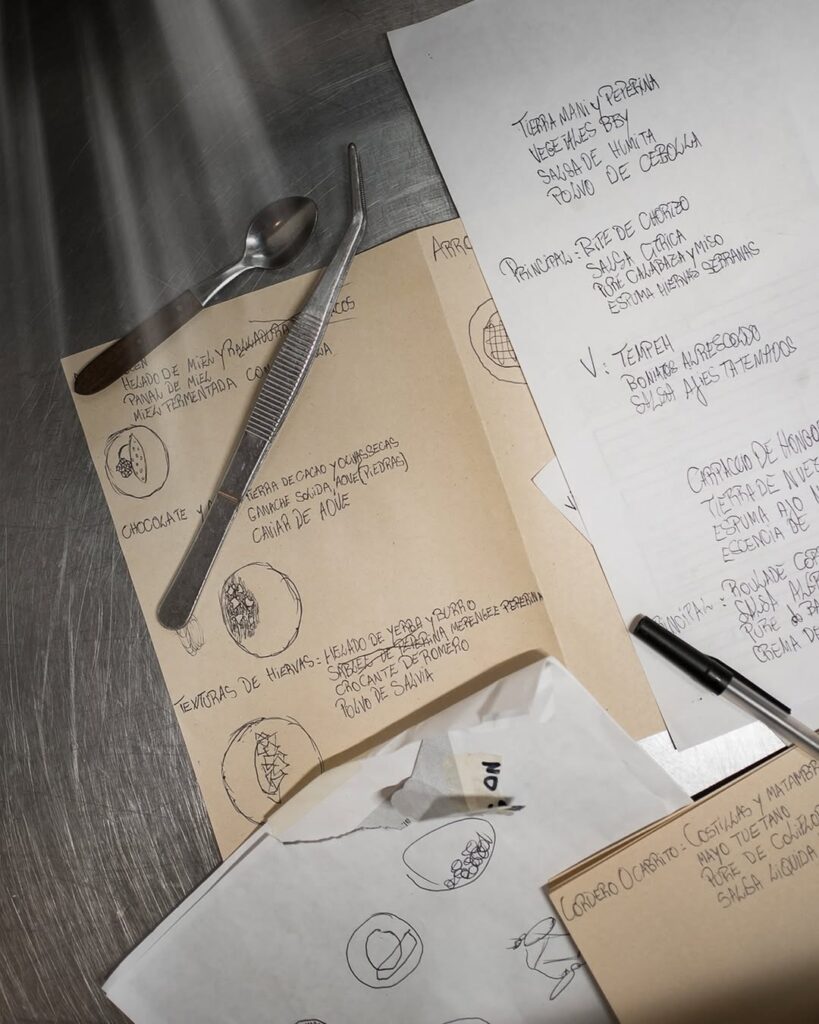 TIERRA MANI Y PEPERINA
VEGETALES BBY
SALSA DE HUMITA
POLVO DE CEBOLLA
PRINCIPAL: BIFE DE CHORIZO
SALSA CITRICA
PURE CALABAZA Y MISO
ESPUMA HIERVAS SERRANAS
V: TEMPEH
BONIATOS AL RESCOLDO
SALSA AJIES TATEMADOS
CARPACCIO DE HONGO
TIERRA DE NUE
ESPUMA AJO
ESCENCIA DE
ROULADE
SALSA
PURE
CREMA DE
ARRO
HELADO DE MIEL Y RALLADURA
PANAL DE MIEL
MIEL FERMENTADA CON
CHOCOLATE Y
TIERRA DE CACAO Y OLIVAS SECAS
GANACHE SOLIDA, AOVE (PIEDRAS)
CAVIAR DE AOVE
TEXTURAS DE HIERVAS: HELADO DE YERBA Y BURRO
SABLEE DE PEPERINA MERENGUE PEPERINA
CROCANTE DE ROMERO
POLVO DE SALVIA
ON
CORDERO O CABRITO: COSTILLAS Y MATAMBR
MAYO TUETANO
PURE DE COLIFLO
SALSA LIQUIDA